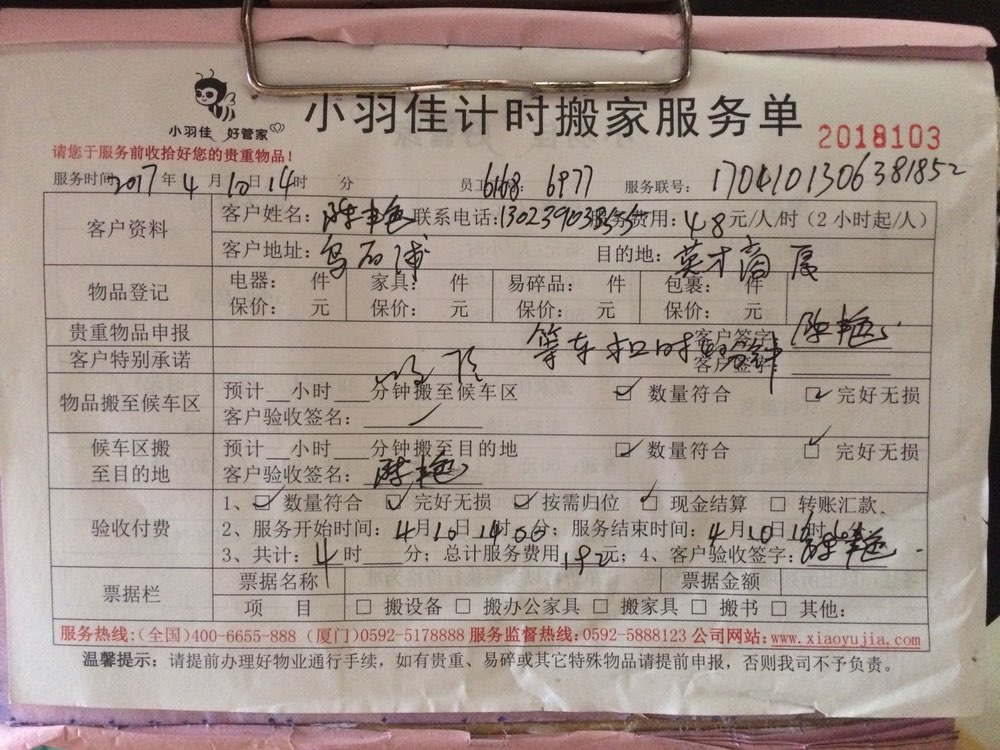 小羽佳 好管家
小羽佳计时搬家服务单
2018103
请您于服务前收拾好您的贵重物品！
服务时间 2017 年 4 月 10 日 14 时 分 员工 6168 6977 服务联号: 1704101306381852
客户资料
客户姓名: 陈艳 联系电话: 服务费用: 48 元/人/时（2小时起/人）
客户地址: 乌石浦 目的地: 英才商厦
物品登记
电器: 件 家具: 件 易碎品: 件 包裹: 件
保价: 元 保价: 元 保价: 元 保价: 元
贵重物品申报 客户签字 陈艳
客户特别承诺 等车扣时 客户签字
物品搬至候车区
预计 小时 分钟搬至候车区 ☑ 数量符合 ☑ 完好无损
客户验收签名:
候车区搬至目的地
预计 小时 分钟搬至目的地 ☑ 数量符合 ☑ 完好无损
客户验收签名: 陈艳
验收付费
1、☑ 数量符合 ☑ 完好无损 ☑ 按需归位 ☑ 现金结算 □ 转账汇款
2、服务开始时间: 4 月 10 日 14 时 00 分; 服务结束时间: 4 月 10 日 时 分
3、共计: 4 时 分; 总计服务费用 192 元; 4、客户验收签字: 陈艳
票据栏
票据名称 票据金额
项 目 □ 搬设备 □ 搬办公家具 □ 搬家具 □ 搬书 □ 其他:
服务热线:(全国)400-6655-888 (厦门)0592-5178888 服务监督热线:0592-5888123 公司网站:www.xiaoyujia.com
温馨提示: 请提前办理好物业通行手续，如有贵重、易碎或其它特殊物品请提前申报，否则我司不予负责。